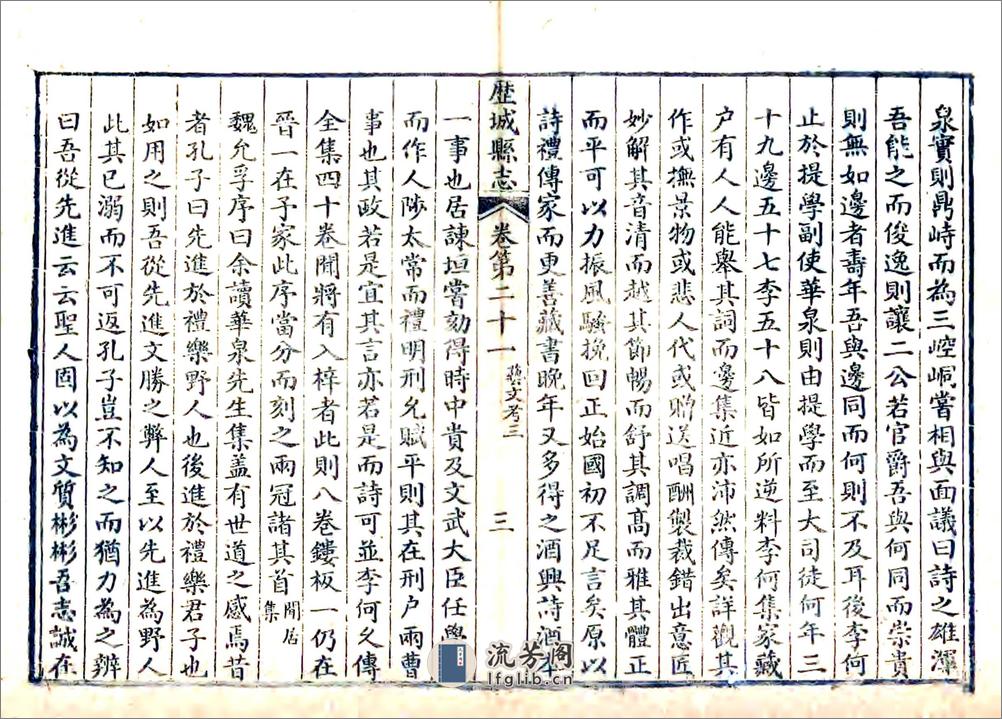 泉實則鼎峙而為三崆峒嘗相與面議曰詩之雄渾
吾能之而俊逸則讓二公若官爵吾與何同而崇貴
則無如邊者壽年吾與邊同而何則不及耳後李何
止於提學副使華泉則由提學而至大司徒何年三
十九邊五十七李五十八皆如所逆料李何集家藏
户有人人能舉其詞而邊集近亦沛然傳矣詳觀其
作或撫景物或悲人代或贈送唱酬製裁錯出意匠
妙解其音清而越其節暢而舒其調髙而雅其體正
而平可以力振風騷挽回正始國初不足言矣原以
詩禮傳家而更善藏書晩年又多得之酒興詩酒本
歷城縣志 卷第二十一 藝文考三 三
一事也居諫垣嘗劾得時中貴及文武大臣任學
而作人陟太常而禮明刑允賦平則其在刑户兩曹
事也其政若是宜其言亦若是而詩可並李何久傳
全集四十卷聞將有入梓者此則八卷鏤板一仍在
晉一在予家此序當分而刻之兩冠諸其首 閒居集
魏允孚序曰余讀華泉先生集盖有世道之感焉昔
者孔子曰先進於禮樂野人也後進於禮樂君子也
如用之則吾從先進文勝之弊人至以先進為野人
此其已溺而不可返孔子豈不知之而猶力為之辨
曰吾從先進云云聖人固以為文質彬彬吾志誠在
流芳閣
lfglib.cn